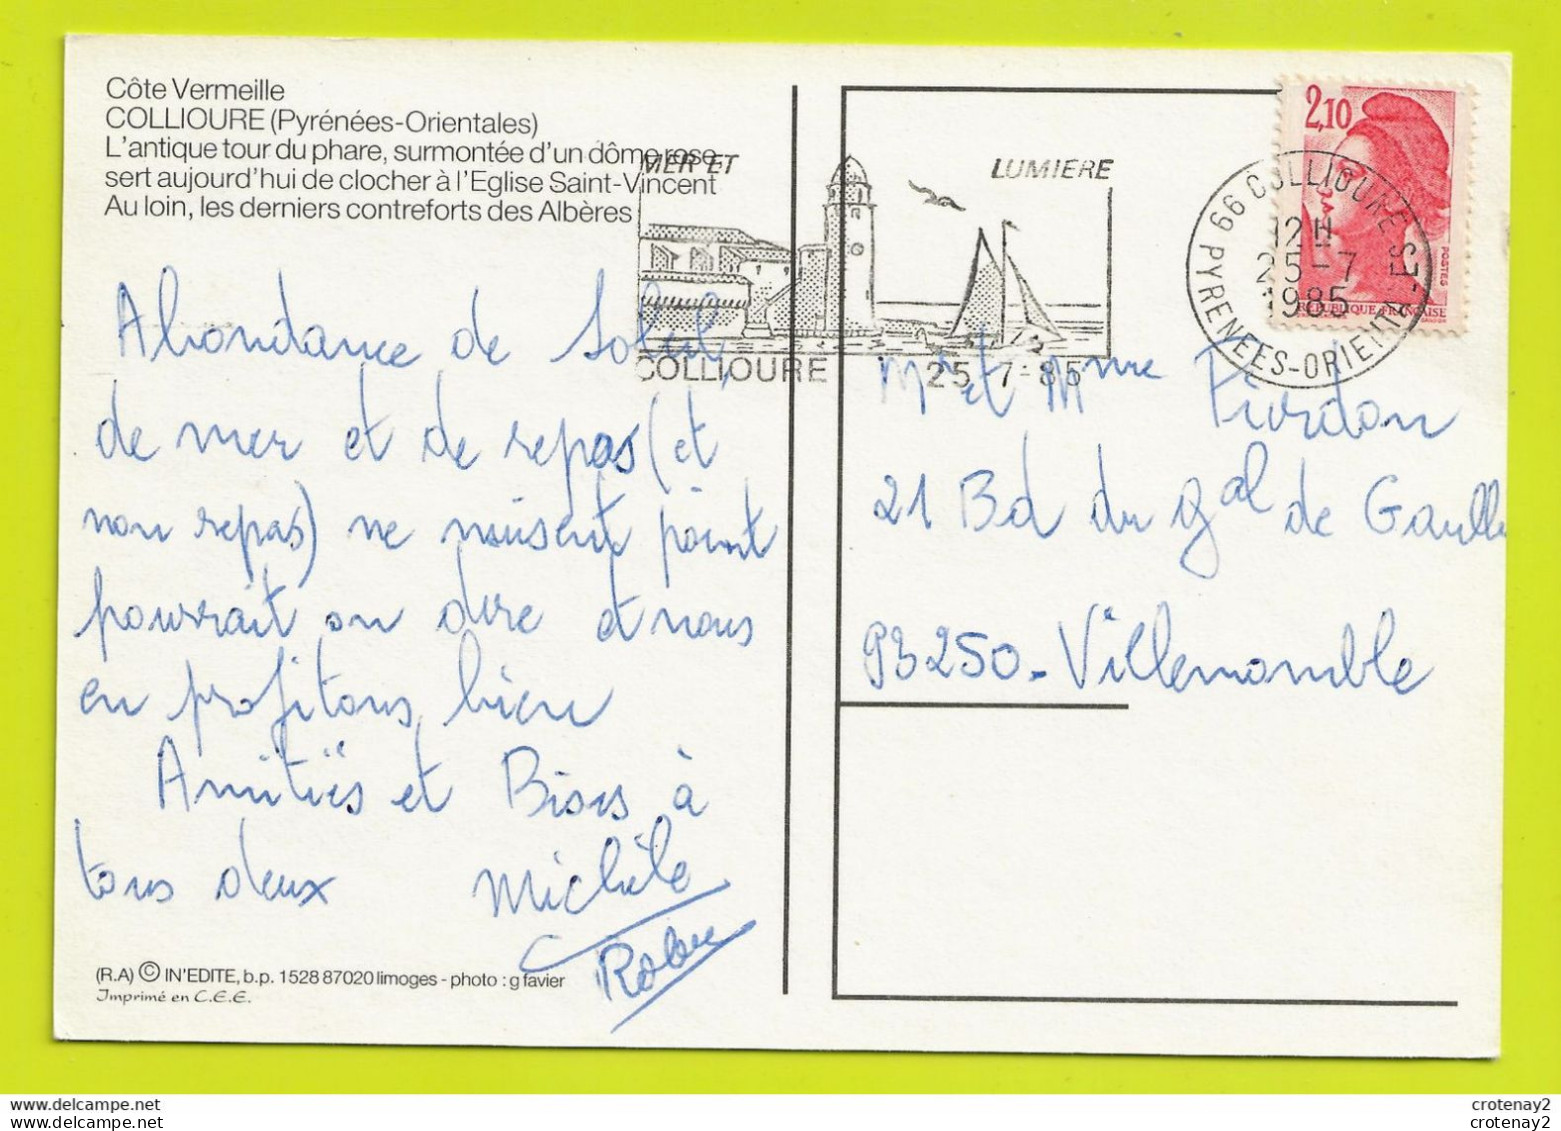 Côte Vermeille
COLLIOURE (Pyrénées-Orientales)
L'antique tour du phare, surmontée d'un dôme rose,
sert aujourd'hui de clocher à l'Eglise Saint-Vincent
Au loin, les derniers contreforts des Albères
MER ET LUMIERE
COLLIOURE 25 7-85
2,10
POSTES
REPUBLIQUE FRANÇAISE
66 COLLIOURE
12H
25-7
1985
PYRENEES-ORIENTALES
Abondance de Soleil,
de mer et de repas (et
non repas) ne nuisent point
pourrait on dire et nous
en profitons bien
Amitiés et Bises à
tous deux Michèle
M et Mme Fiordon
21 Bd du gal de Gaulle
93250 - Villemomble
(R.A) © IN'EDITE, b.p. 1528 87020 limoges - photo : g favier
Imprimé en C.E.E.
crotenay2
crotenay2